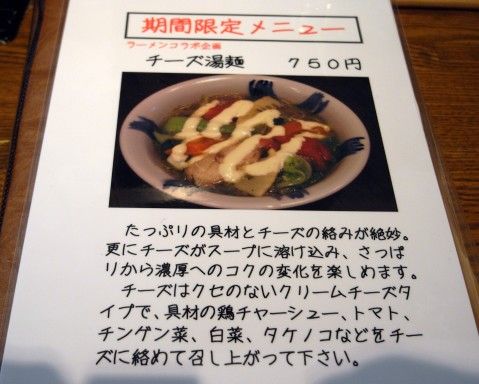 期間限定メニュー
ラーメンコラボ企画
チーズ湯麺　７５０円
たっぷりの具材とチーズの絡みが絶妙。
更にチーズがスープに溶け込み、さっぱ
りから濃厚へのコクの変化を楽しめます。
チーズはクセのないクリームチーズタ
イプで、具材の鶏チャーシュー、トマト、
チンゲン菜、白菜、タケノコなどをチー
ズに絡めて召し上がって下さい。